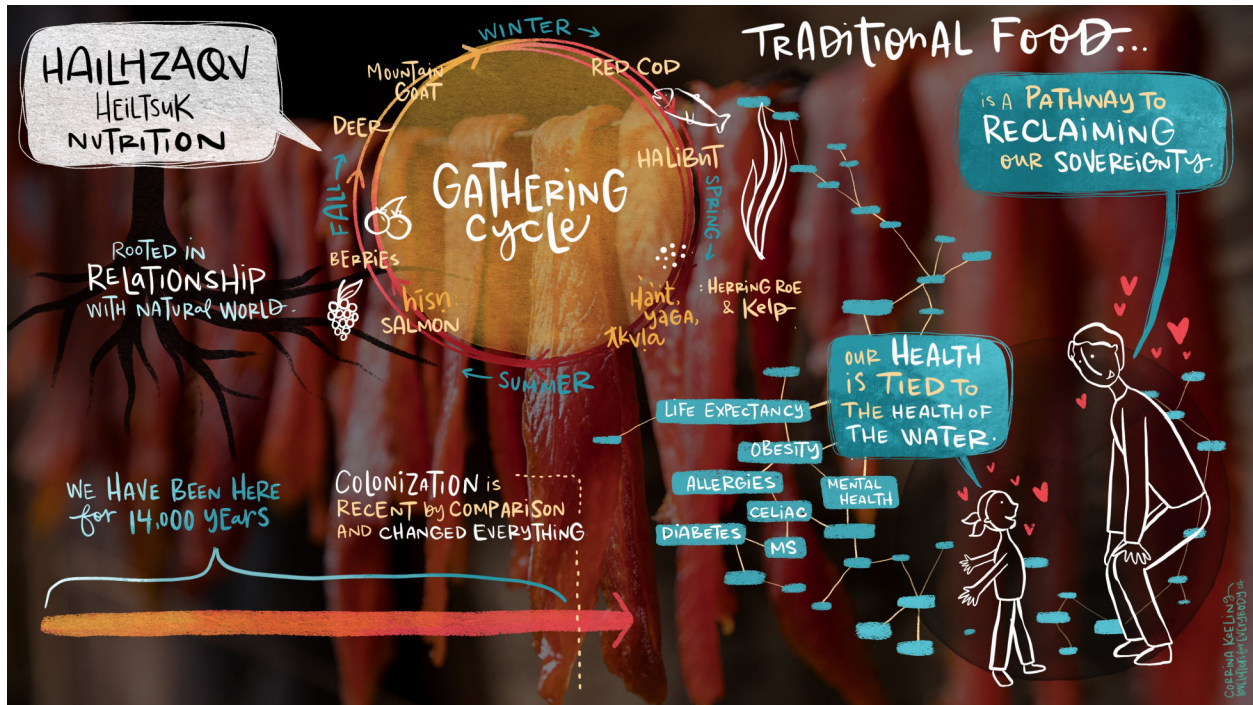 HAILHZAQV
HEILTSUK
NUTRITION
ROOTED IN
RELATIONSHIP
WITH NATURAL WORLD.
WINTER
MOUNTAIN
GOAT
DEER
FALL
BERRIES
GATHERING
CYCLE
RED COD
HALIBUT
SPRING
: HERRING ROE
& KELP
SALMON
SUMMER
TRADITIONAL FOOD...
IS A PATHWAY TO
RECLAIMING
OUR SOVEREIGNTY.
OUR HEALTH
IS TIED TO
THE HEALTH OF
THE WATER.
LIFE EXPECTANCY
OBESITY
ALLERGIES
MENTAL
HEALTH
CELIAC
DIABETES
MS
WE HAVE BEEN HERE
for 14,000 YEARS
COLONIZATION IS
RECENT by COMPARISON
AND CHANGED EVERYTHING
CORRINA KEELING